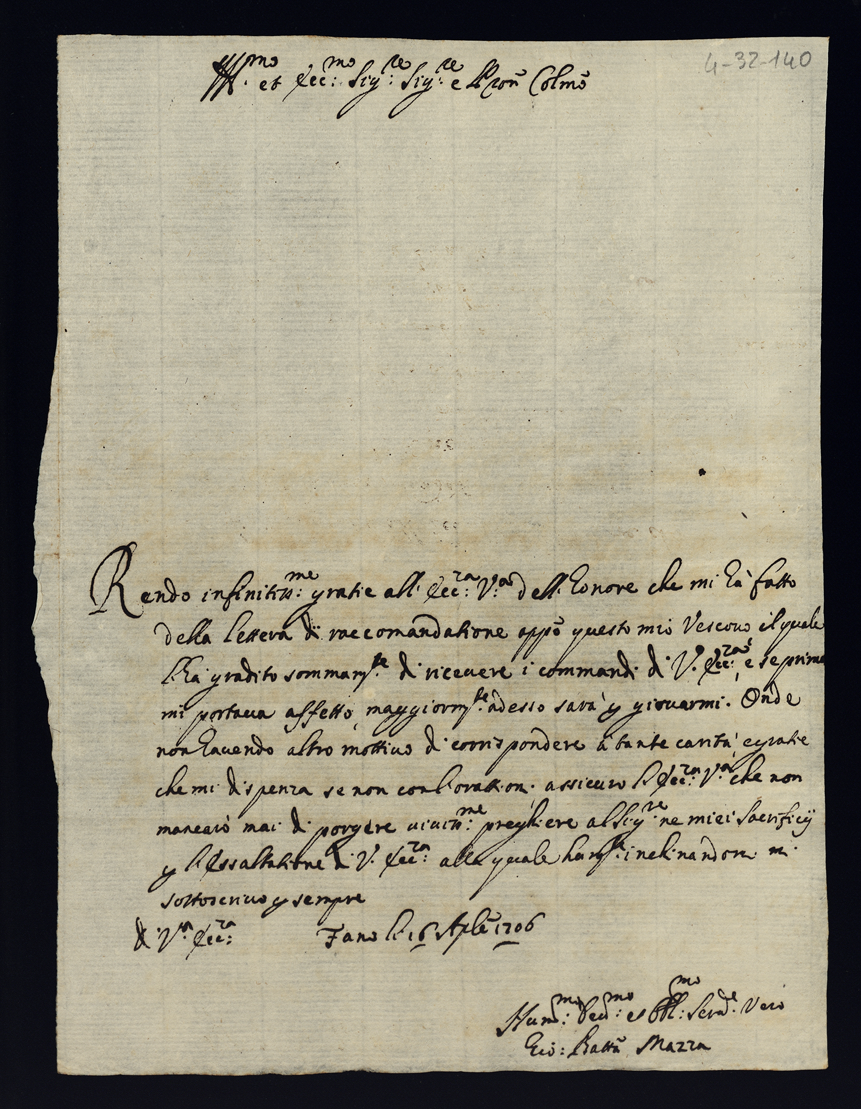 4-32-140
Ill.mo et Ecc.mo Sig.re Sig.re e Pron Colmo
Rendo infinitiss.me gratie all' Ecc.za V.a dell' honore che mi hà fatto
della lettera di raccomandatione appò questo mio Vescovo il quale
l'hà gradito sommam.te di ricevere i commandi di V.a Ecc.za, e se prima
mi portava affetto, maggiorm.te adesso sarà p giovarmi. Onde
non havendo altro mottivo di corrispondere à tante carità, e gratie
che mi dispenza se non con l'orationi assicuro l'Ecc.za V.a che non
mancarò mai di porgere viviss.me preghiere al Sig.re ne miei Sacrificij
p l'Essaltatione di V. Ecc.za alla quale hum.te inclinandomi mi
sottoscrivo p sempre
di V.a Ecc.za Fano li 16 Aple 1706
Hum.mo Dev.mo et Obl.mo Serv.e Vero
Gio: Batta Mazza